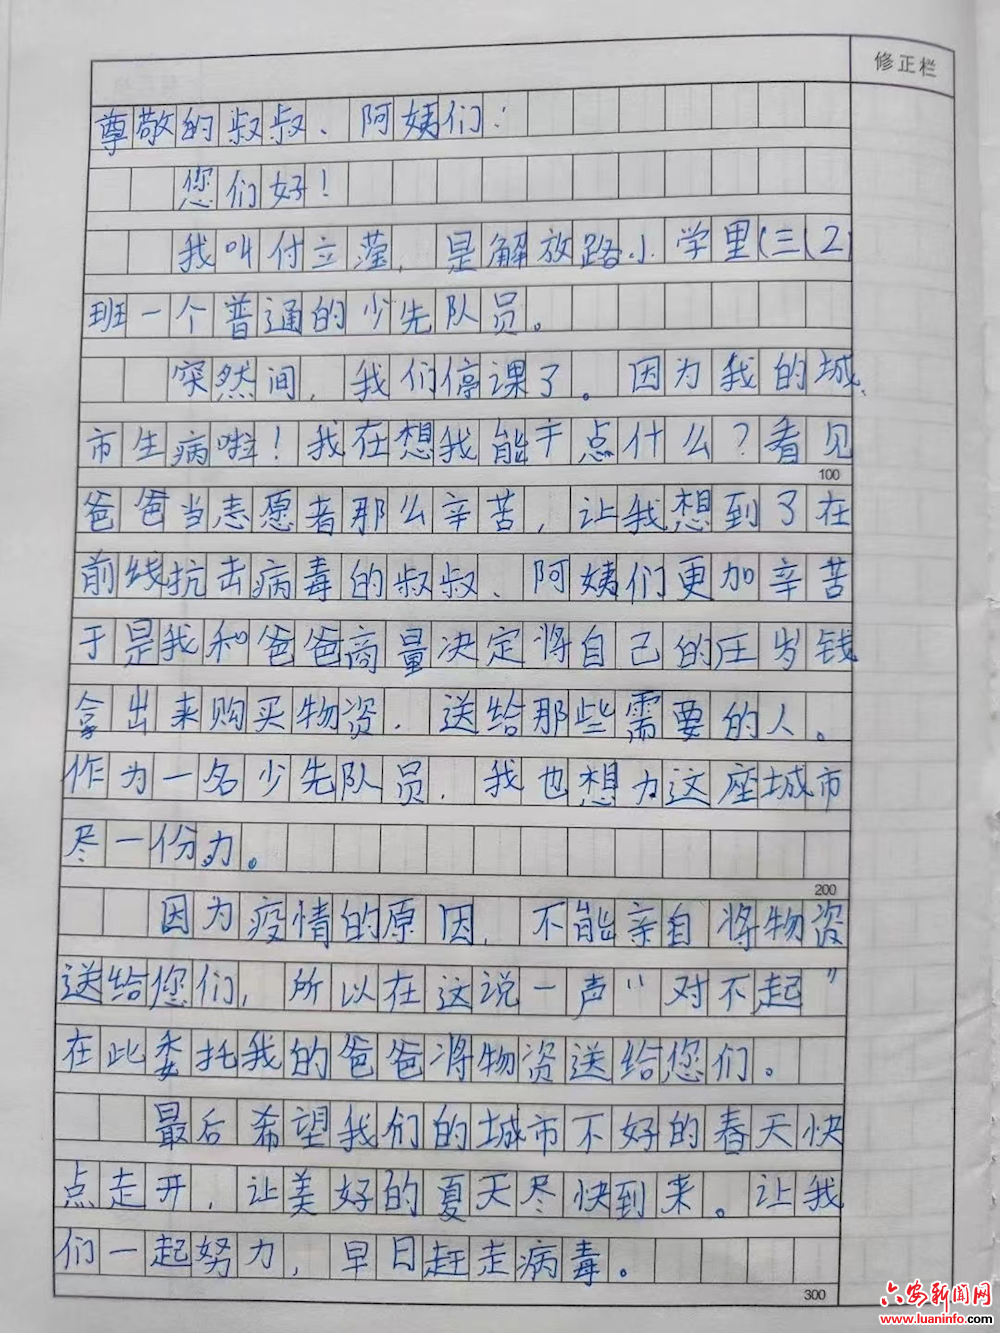 修正栏
尊敬的叔叔、阿姨们：
您们好！
我叫付立滢，是解放路小学里(三(2)
班一个普通的少先队员。
突然间，我们停课了。因为我的城
市生病啦！我在想我能干点什么？看见
100
爸爸当志愿者那么辛苦，让我想到了在
前线抗击病毒的叔叔、阿姨们更加辛苦
于是我和爸爸商量决定将自己的压岁钱
拿出来购买物资，送给那些需要的人。
作为一名少先队员，我也想为这座城市
尽一份力。
200
因为疫情的原因，不能亲自将物资
送给您们，所以在这说一声“对不起”
在此委托我的爸爸将物资送给您们。
最后希望我们的城市不好的春天快
点走开，让美好的夏天尽快到来。让我
们一起努力，早日赶走病毒。
300
六安新闻网
www.luaninfo.com